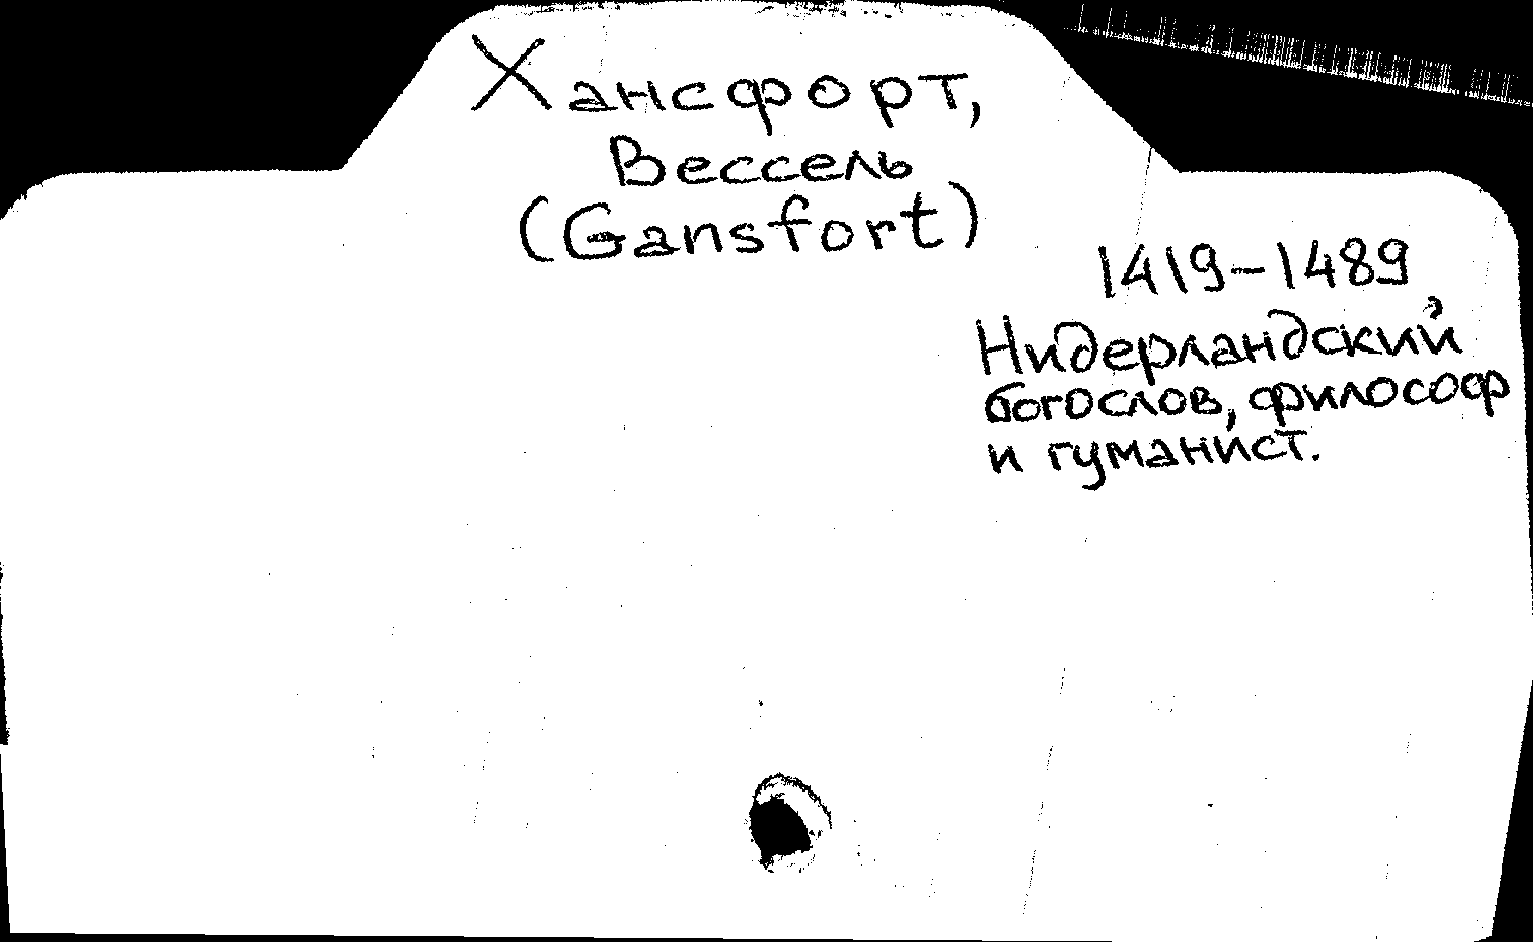 Хансфорт,
Вессель
(Gansfort)
1419-1489
Нидерландский
богослов, философ
и гуманист.